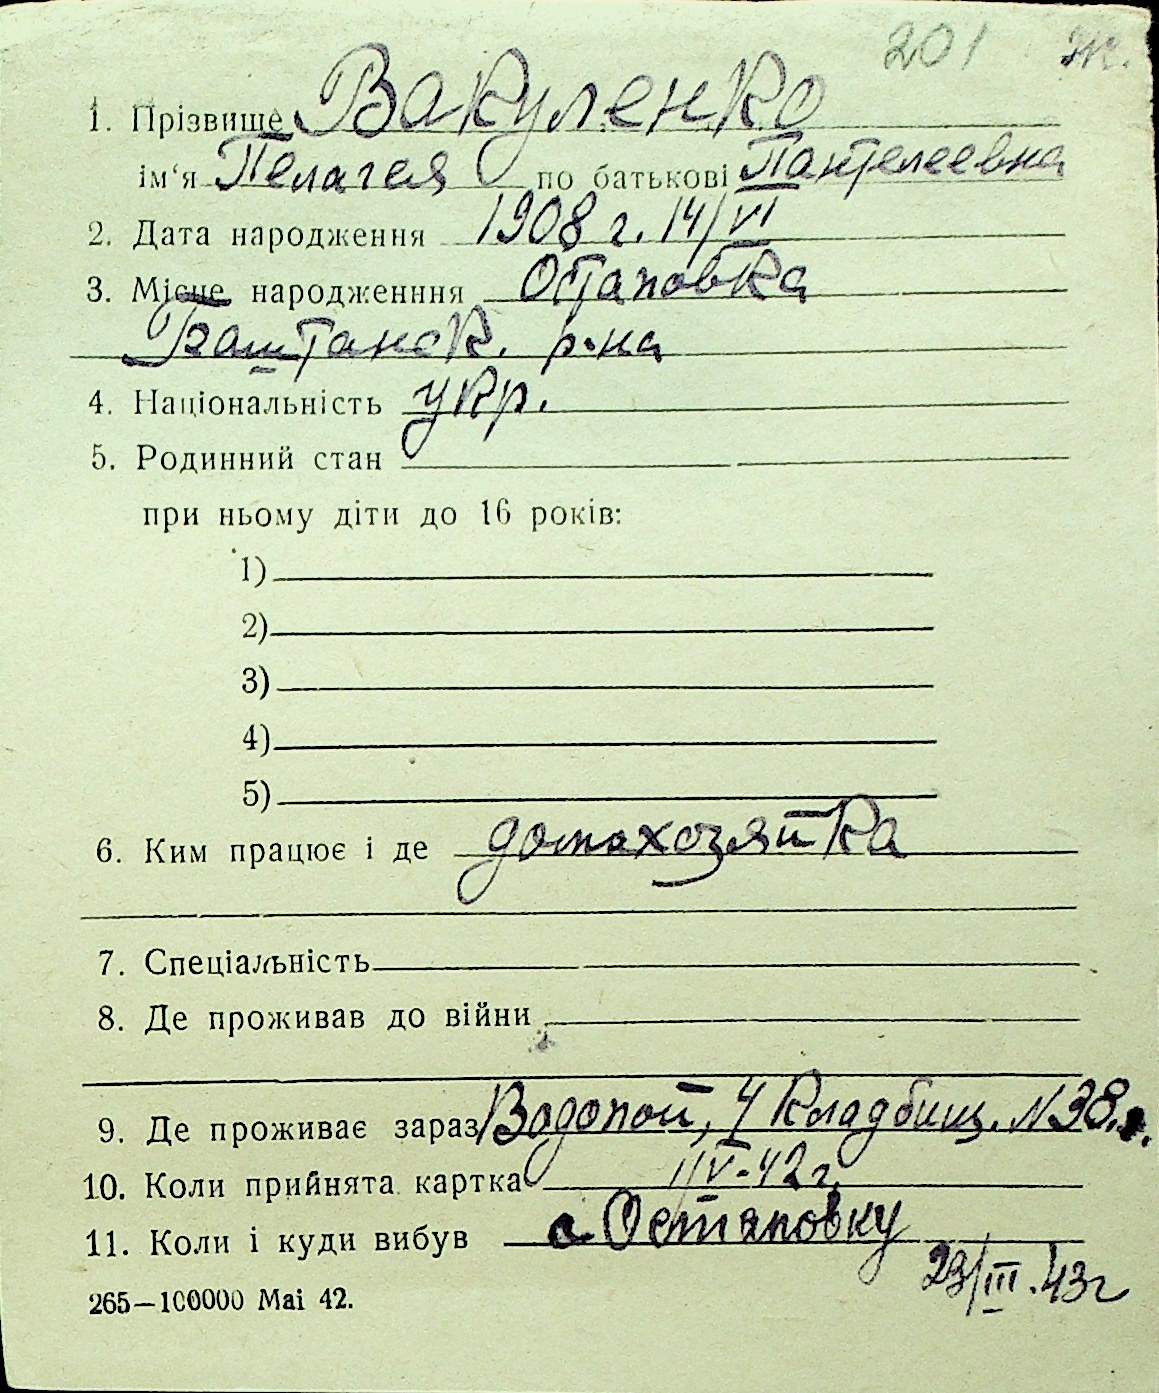 201 Ж.
1. Прізвище Вакуленко
ім‘я Пелагея по батькові Пантелеевна
2. Дата народження 1908 г. 14/VI
3. Місце народженння Остаповка
Баштанск. р-на
4. Національність укр.
5. Родинний стан
при ньому діти до 16 років:
1)
2)
3)
4)
5)
6. Ким працює і де домахозяйка
7. Спеціальність
8. Де проживав до війни
9. Де проживає зараз Водопой, 4 Кладбищ. N 38.
10. Коли прийнята картка 1/V-42 г.
11. Коли і куди вибув с. Остаповку
23/III.43 г
265—100000 Mai 42.